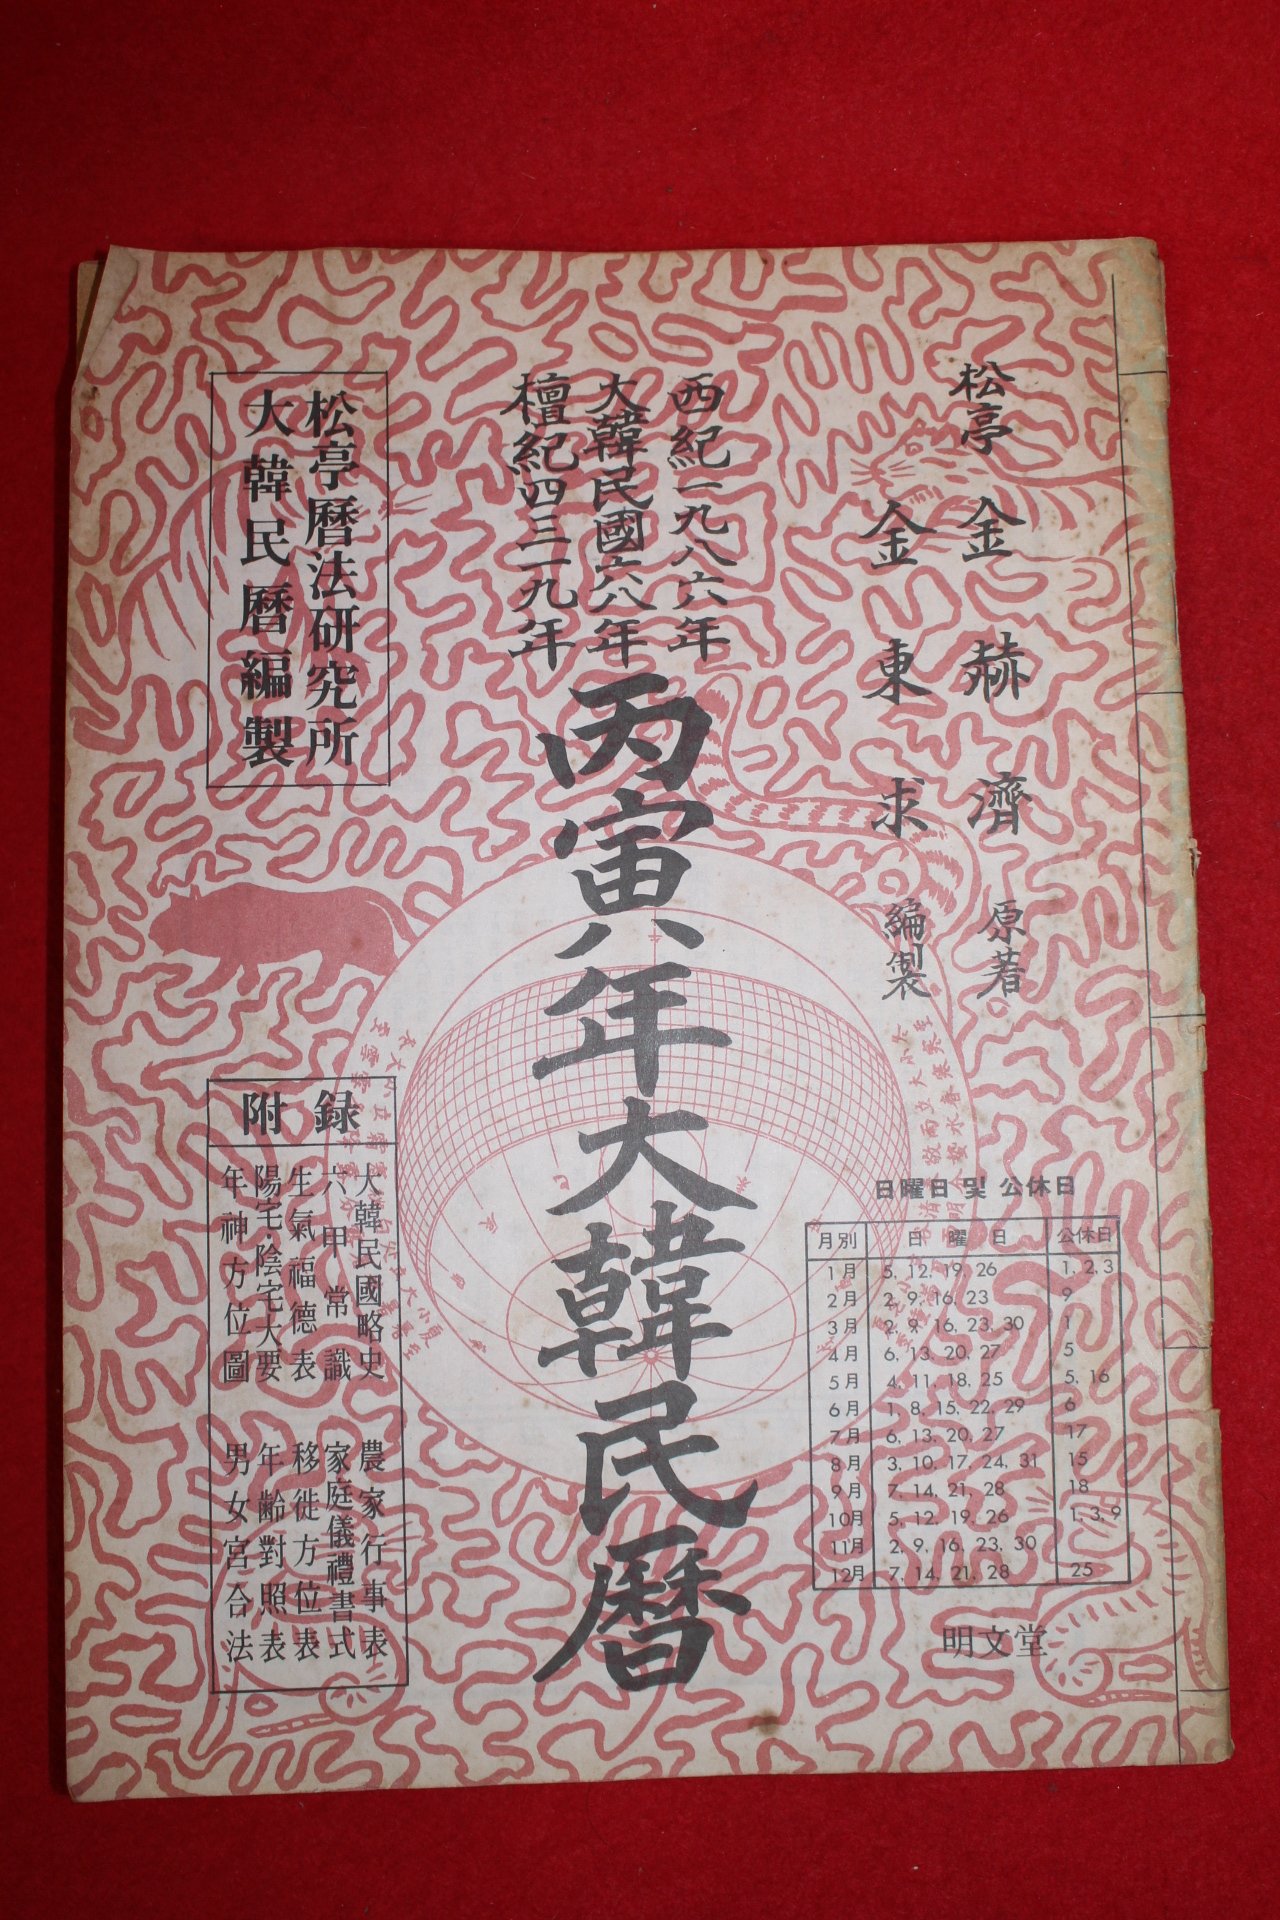 松亭 金赫濟 原著
金東求 編製
西紀一九八六年
大韓民國六八年
檀紀四三一九年
丙寅年大韓民曆
松亭曆法硏究所
大韓民曆編製
附錄
大韓民國略史 農家行事表
六甲常識 家庭儀禮書式
生氣福德表 移徙方位表
陽宅·陰宅大要 年齡對照表
年神方位圖 男女宮合法
日曜日 및 公休日
月別 日曜日 公休日
1月 5, 12, 19, 26 1, 2, 3
2月 2, 9, 16, 23 9
3月 2, 9, 16, 23, 30 1
4月 6, 13, 20, 27 5
5月 4, 11, 18, 25 5, 16
6月 1, 8, 15, 22, 29 6
7月 6, 13, 20, 27 17
8月 3, 10, 17, 24, 31 15
9月 7, 14, 21, 28 18
10月 5, 12, 19, 26 1, 3, 9
11月 2, 9, 16, 23, 30
12月 7, 14, 21, 28 25
明文堂